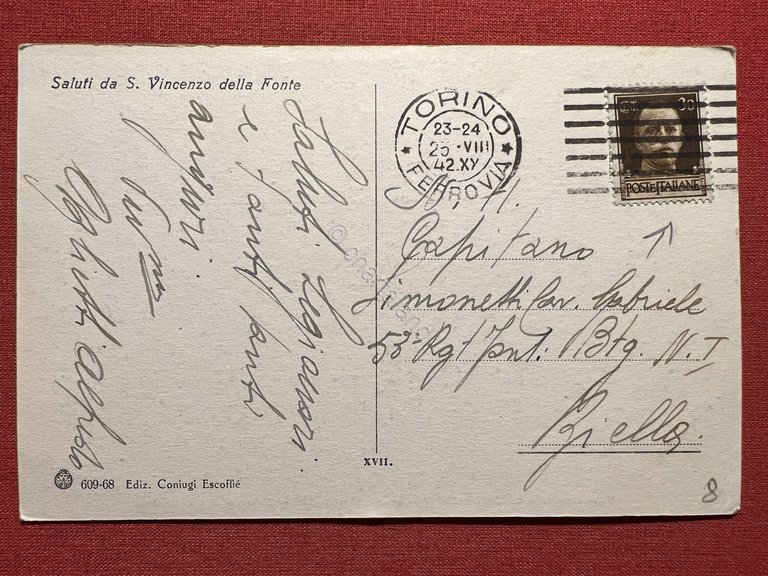 Saluti da S. Vincenzo della Fonte
Saluti
e tanti tanti
auguri
TORINO
23-24
25·VIII
42.XX
FERROVIA
CT. 30
POSTE ITALIANE
Capitano
Simonetti Cav. Gabriele
53° Rgt Fant. Btg. N. I
Biella
XVII.
609-68 Ediz. Coniugi Escoffié
8